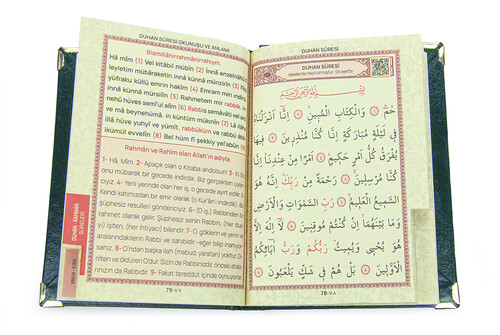 DUHAN SÛRESİ OKUNUŞU VE ANLAMI
Bismillâhirrahmânirrahîym.
Hâ mîm (1) Vel kitâbil mübîn (2) İnnâ enzelnâhu
leyletim mübâraketin innâ künnâ münzirîn (3)
yüfraku küllü emrin hakîm (4) Emram min indinâ
innâ künnâ mürsilîn (5) Rahmetem mir rabbik,
nehû hüves semî'ul alîm (6) Rabbis semâvâti vel
ve mâ beynehümâ. in küntüm mûkınîn (7) Lâ
illâ hüve yuhyî ve yümît. rabbüküm ve rabbü âbâ
ikümül evvelîn (8) Bel hüm fî şekkiy yel'abûn
Rahmân ve Rahîm olan Allah'ın adıyla.
1- Hâ, Mîm. 2- Apaçık olan o Kitaba andolsun! 3-
onu mübarek bir gecede indirdik. Biz gerçekten
oyarız. 4- Yerli yerinde olan her iş, o gecede ayırt edilir.
Kendi katımızdan bir emir olarak (o Kur'ân'ı indirdik).
şüphesiz resulleri göndericiyiz. 6- (O iş,) Rabbinden
rahmet olarak gelir. Şüphesiz senin Rabbin, (her
yı) işiten, (her ihtiyacı) bilendir. 7- O, göklerin ve yerin
aralarındakilerin Rabbi ve sahibidir -eğer bilip inanıyor
sanız. 8- O'ndan başka ilah (mabud, yaratan) yoktur.
rilten ve öldüren O'dur. Sizin de Rabbinizdir, önceki ata
rınızın da Rabbidir. 9- Fakat tereddüt içinde oynuyorlar
DUHAN - RAHMAN
SÛRELERİ
79-٧٩
DUHAN SÛRESİ
DUHAN SÛRESİ
Mekke'de nazil olmuştur. 59 ayettir.
بِسْمِ اللّٰهِ الرَّحْمٰنِ الرَّحِيمِ
حٰمٓ ﴿١﴾ وَالْكِتَابِ الْمُبِينِ ﴿٢﴾ إِنَّٓا أَنْزَلْنَاهُ
فِي لَيْلَةٍ مُبَارَكَةٍ إِنَّا كُنَّا مُنْذِرِينَ ﴿٣﴾ فِيهَا
يُفْرَقُ كُلُّ أَمْرٍ حَكِيمٍ ﴿٤﴾ أَمْرًا مِنْ عِنْدِنَا إِنَّا
كُنَّا مُرْسِلِينَ ﴿٥﴾ رَحْمَةً مِنْ رَبِّكَ إِنَّهُ هُوَ
السَّمِيعُ الْعَلِيمُ ﴿٦﴾ رَبِّ السَّمٰوَاتِ وَالْأَرْضِ
وَمَا بَيْنَهُمَا إِنْ كُنْتُمْ مُوقِنِينَ ﴿٧﴾ لَٓا إِلٰهَ إِلَّا
هُوَ يُحْيِي وَيُمِيتُ رَبُّكُمْ وَرَبُّ اٰبَٓائِكُمُ
الْأَوَّلِينَ ﴿٨﴾ بَلْ هُمْ فِي شَكٍّ يَلْعَبُونَ ﴿٩﴾
78-٧٨